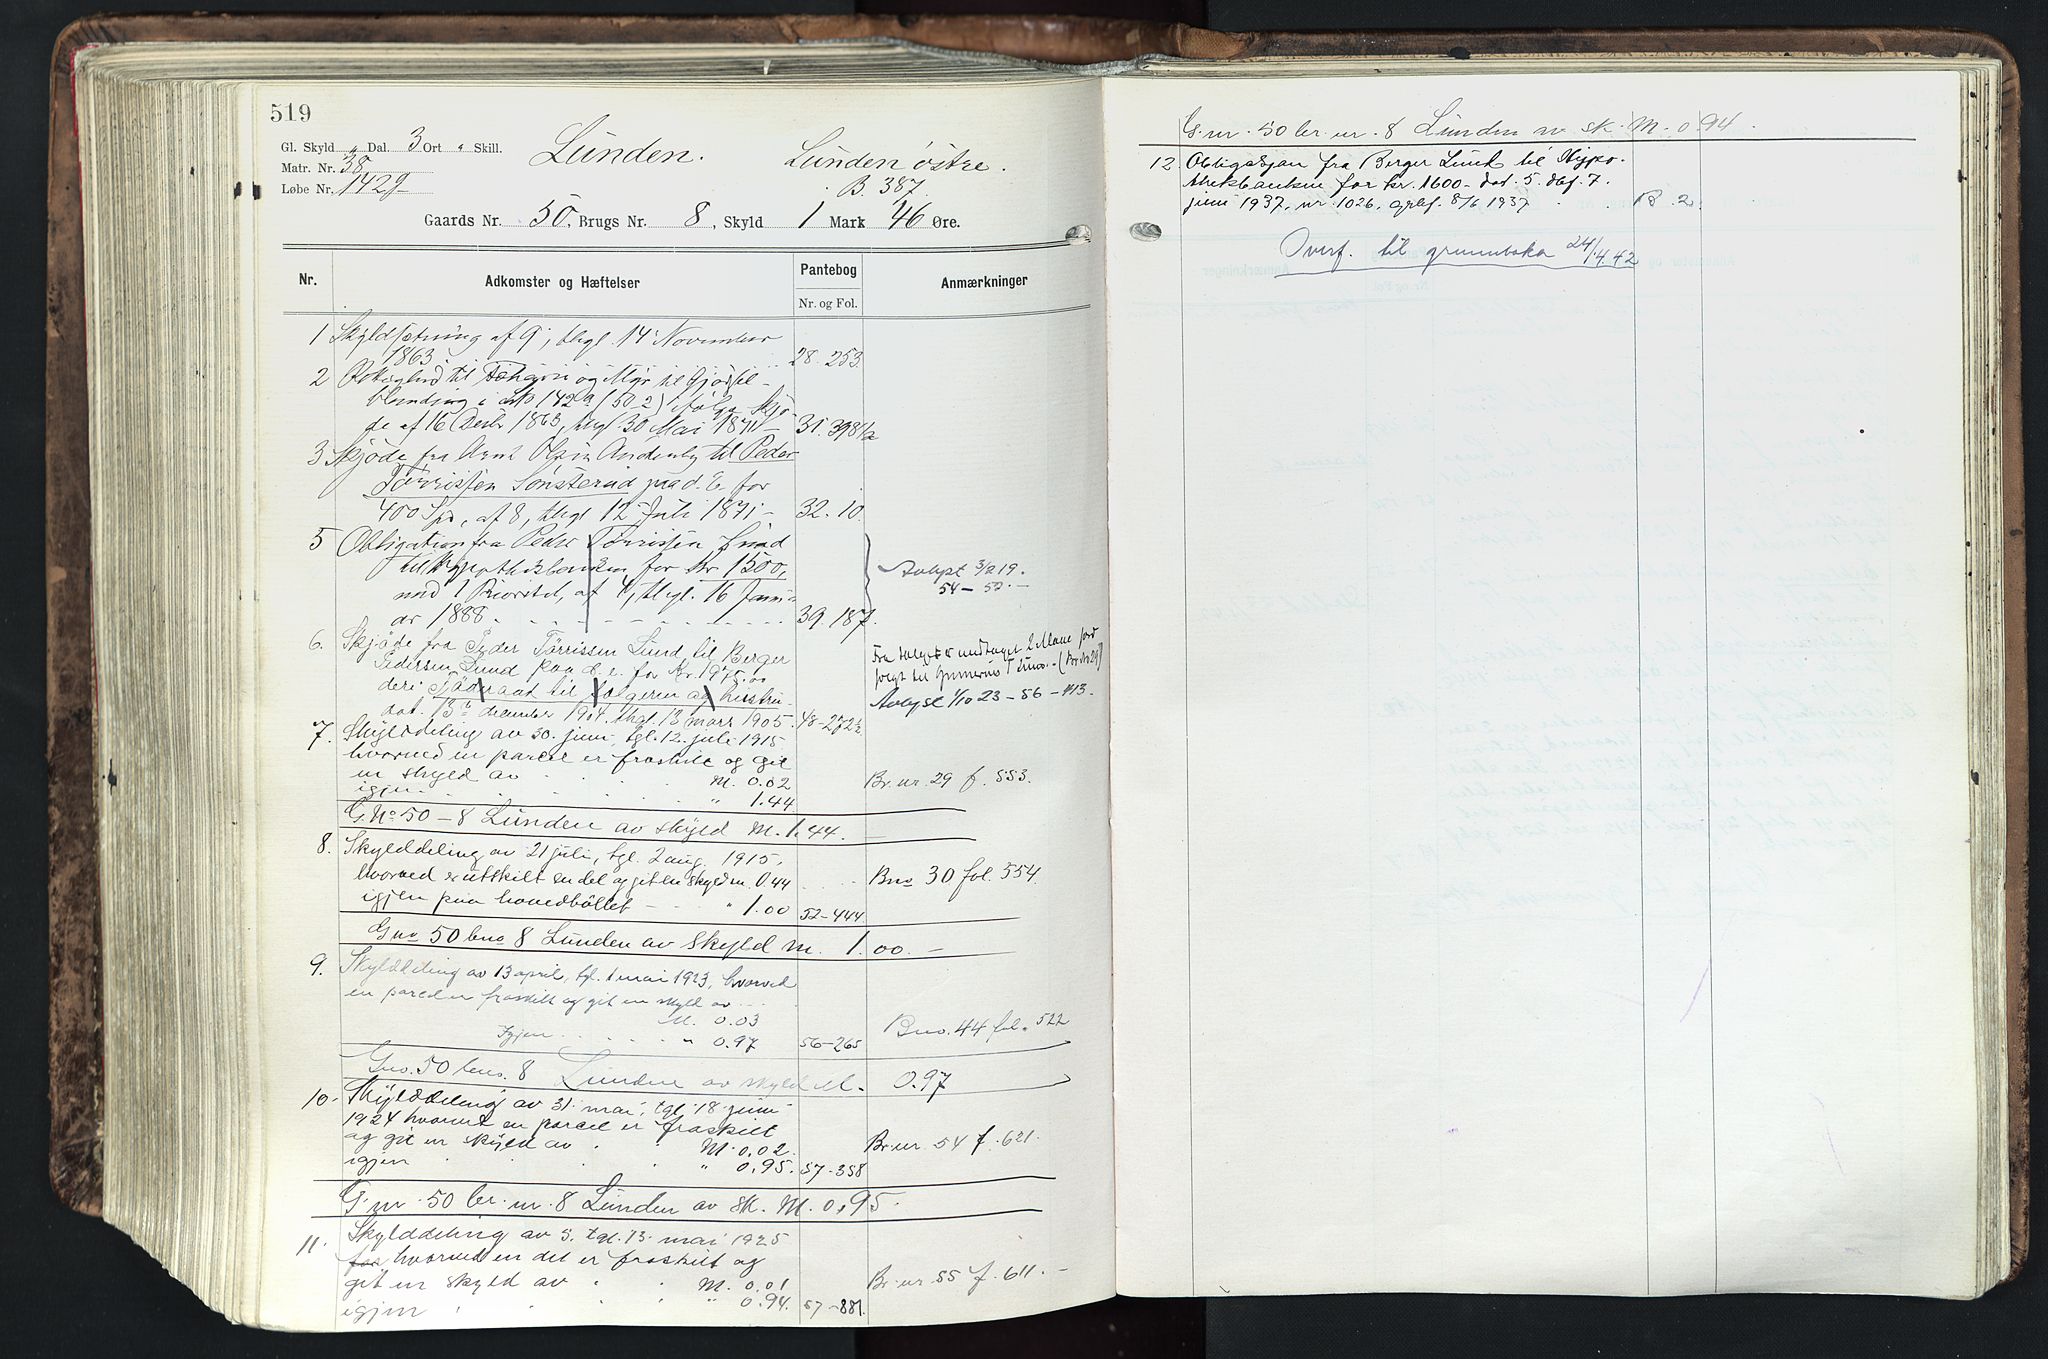 519
Gl. Skyld " Dal. 3 Ort " Skill.
Matr. Nr. 38
Løbe Nr. 142g
Lunden.
Lunden østre.
B. 387.
Gaards Nr. 50, Brugs Nr. 8, Skyld 1 Mark 46 Øre.
Nr. Adkomster og Hæftelser Pantebog Anmærkninger
Nr. og Fol.
1 Skyldsætning af 9, thgl. 14 November
1863 28. 253
2 til og til
i 142a (50.2) ifølge Skjø-
de af 16 Decbr 1863, thgl 30 Mai 1871 - 31. 398 1/2
3 Skjøde fra Arnt Olsen Andenby til Peder
Tørrissen Sønsterud paa d. E. for
400 Spd, af 8, thgl 12 Juli 1871 - 32. 10.
5 Obligation fra Peder Tørrissen Lund
til Hypothekbanken for Kr 1500,
med 1 Prioritet, af 4, thgl. 16 Janu-
ar 1888 39. 187.
Avlyst 3/2 19.
54 - 52. -
6. Skjøde fra Peder Tørrissen Lund til Berger
Pedersen Lund paa d. e. for Kr. 1975.00
deri Föderaad til sælgeren og hustru.
dat. 13de december 1904. thgl. 13 mars 1905. 48-272 1/2
Fra salget er undtaget 2 Maal jord
solgt til Gunerius (Br. No 29)
Avlyst 1/10 23 - 56 - 113.
7. Skylddeling av 30. juni, tgl. 12. juli 1915
hvorved en parcel er fraskilt og git
en skyld av M. 0.02
igjen " 1.44
Br. nr. 29 f. 553.
G. No 50 - 8 Lunden av skyld M. 1.44. -
8. Skylddeling av 21 juli, tgl. 2 aug. 1915,
hvorved er utskilt en del og git en skyld m. 0.44
igjen paa hovedbøllet - " 1.00 52-444
Bno 30 fol. 554.
Gno 50 bno 8 Lunden av skyld m. 1.00. -
9. Skylddeling av 13 april, tgl. 1 mai 1923, hvorved
en parcel er fraskilt og git en skyld av
M. 0.03
Igjen " 0.97 56-265
Bno. 44 fol. 522
Gno. 50 bno. 8 Lunden av skyld M. 0.97
10. Skylddeling av 31. mai, tgl. 18. juni
1924 hvorved en parcel er fraskilt
og git en skyld av M. 0.02.
igjen " 0.95. 57-358
Br. nr. 54 f. 621.
G. nr. 50 br. nr. 8 Lunden av sk. M. 0,95.
11. Skylddeling av 5. tgl. 13. mai 1925
for hvorved en del er fraskilt og
git en skyld av M. 0.01
igjen " 0.94. 57-881.
Br. nr. 55 f. 611. -
G. nr. 50 br. nr. 8 Lunden av sk. M. 0.94.
12 Obligasjon fra Berger Lund til Hypo-
thekbanken for kr. 1600 - dat. 5. dbf. 7.
juni 1937, nr. 1026, gebf. 8/6 1937 B 2.
Overf. til grunnboka 24/4.42